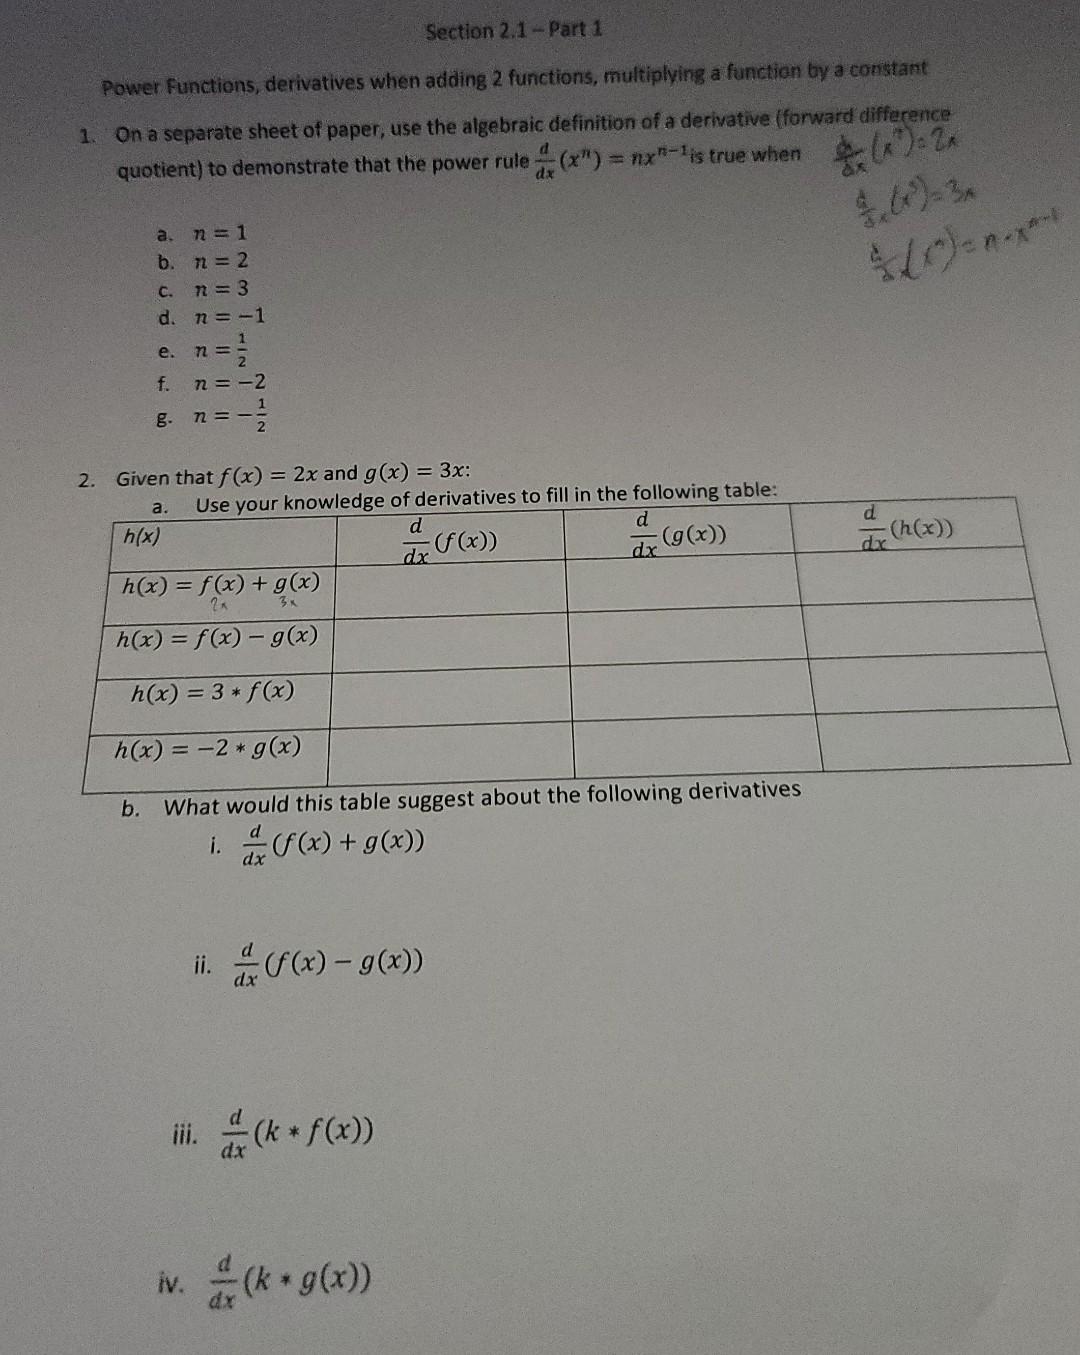 Section 2.1 – Part 1
Power Functions, derivatives when adding 2 functions, multiplying a function by a constant
1. On a separate sheet of paper, use the algebraic definition of a derivative (forward difference
quotient) to demonstrate that the power rule d/dx (xⁿ) = nxⁿ⁻¹ is true when
d/dx (x²) = 2x
d/dx (x³) = 3x
d/dx (xⁿ) = n·xⁿ⁻¹
a. n = 1
b. n = 2
c. n = 3
d. n = −1
e. n = 1/2
f. n = −2
g. n = −1/2
2. Given that f(x) = 2x and g(x) = 3x:
a. Use your knowledge of derivatives to fill in the following table:
h(x) d/dx (f(x)) d/dx (g(x)) d/dx (h(x))
h(x) = f(x) + g(x)
2x 3x
h(x) = f(x) − g(x)
h(x) = 3 * f(x)
h(x) = −2 * g(x)
b. What would this table suggest about the following derivatives
i. d/dx (f(x) + g(x))
ii. d/dx (f(x) − g(x))
iii. d/dx (k * f(x))
iv. d/dx (k * g(x))